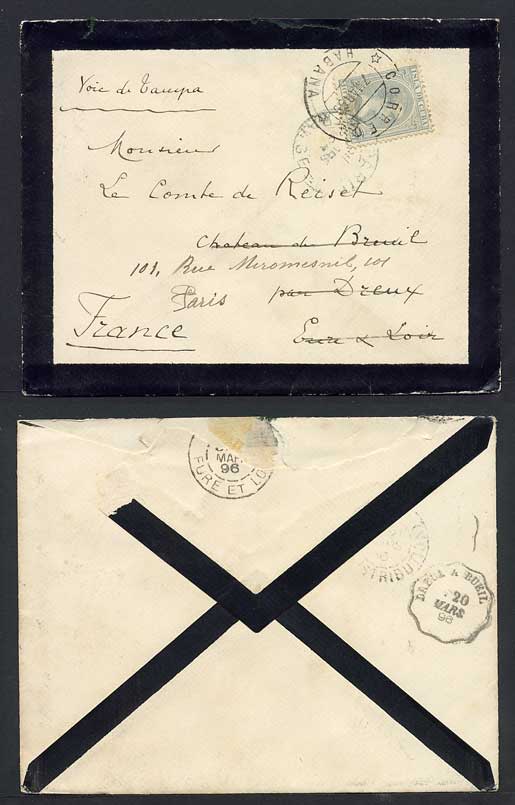 Voie de Tampa
ISLA DE CUBA
CORREOS
HABANA
Monsieur
Le Comte de Reiset
Chateau du Breuil
101, Rue Miromesnil, 101
Paris par Dreux
France Eure & Loir
MAR
96
EURE ET LO
DISTRIBUTION
DREUX A BUEIL
20
MARS
96